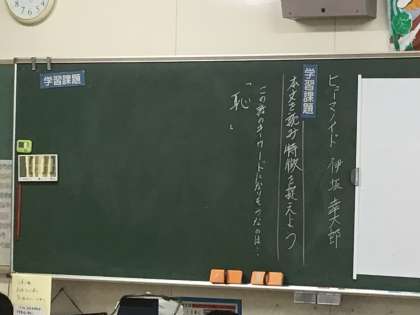 ヒューマノイド 伊坂 幸太郎
学習課題
本文を読み特徴を捉えよう
この話のキーワードになりそうなのは…
「恥」
学習課題